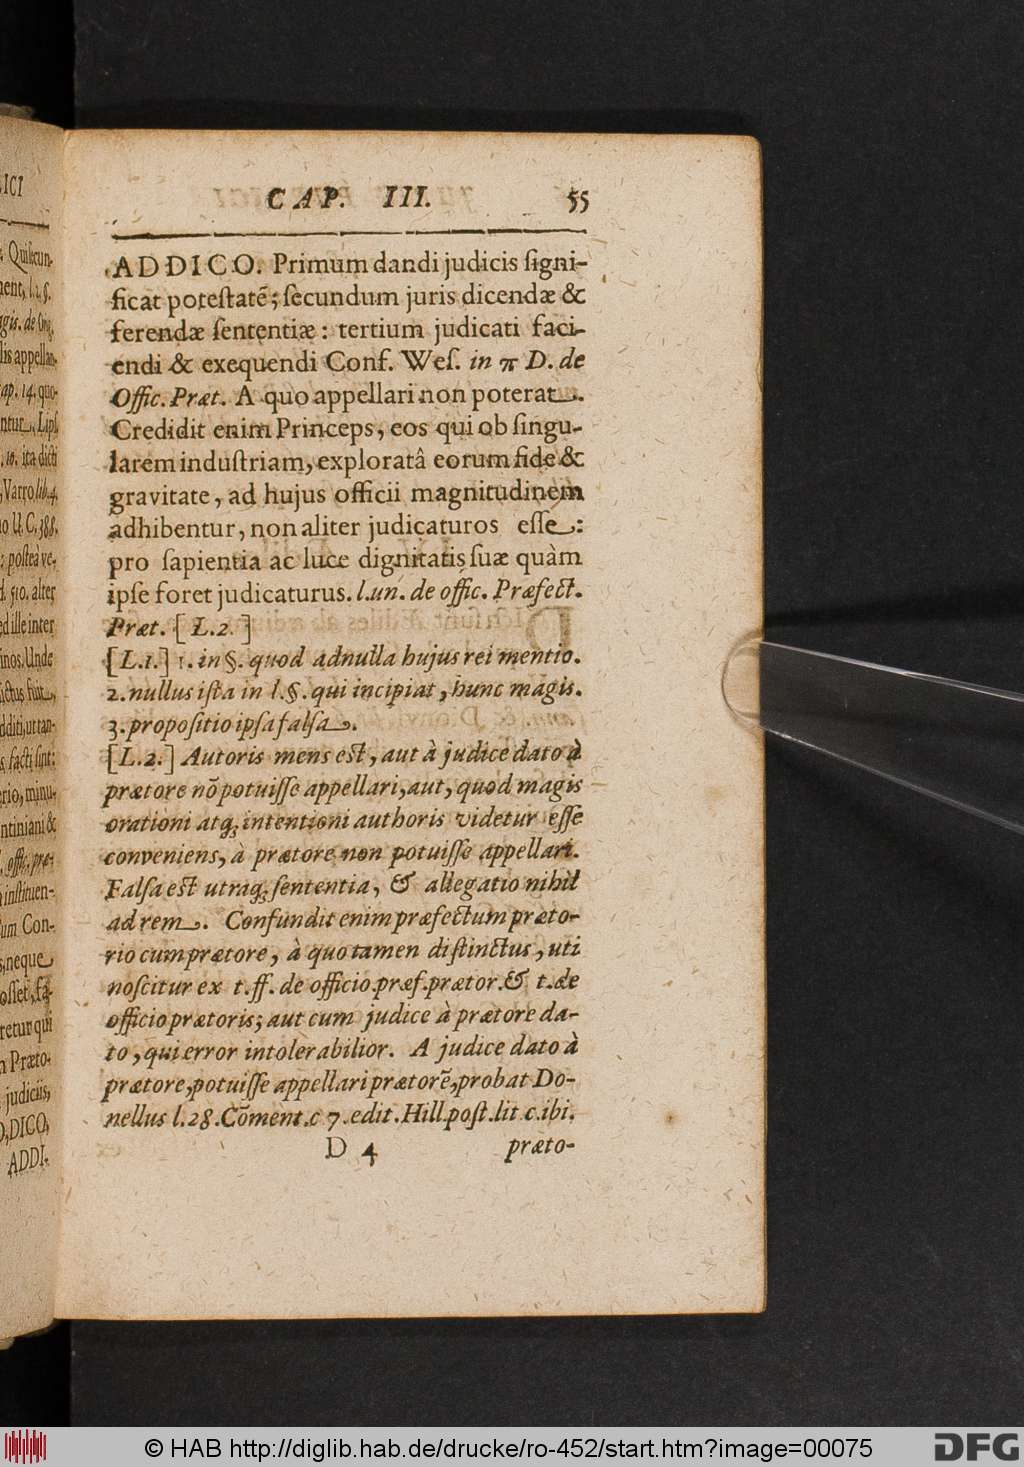 CAP. III. 55
ADDICO. Primum dandi judicis ſigni-
ficat poteſtatē; ſecundum juris dicendæ &
ferendæ ſententiæ: tertium judicati faci-
endi & exequendi Conf. Weſ. in π D. de
Offic. Præt. A quo appellari non poterat.
Credidit enim Princeps, eos qui ob ſingu-
larem induſtriam, exploratâ eorum fide &
gravitate, ad hujus officii magnitudinem
adhibentur, non aliter judicaturos eſſe:
pro ſapientia ac luce dignitatis ſuæ quàm
ipſe foret judicaturus. l. un. de offic. Præfect.
Præt. [L.2.]
[L.1.] 1. in §. quod ad nulla hujus rei mentio.
2. nullus iſta in l. §. qui incipiat, hunc magis.
3. propoſitio ipſa falſa.
[L.2.] Autoris mens eſt, aut à judice dato à
prætore nō potuiſſe appellari, aut, quod magis
orationi atq; intentioni authoris videtur eſſe
conveniens, à prætore non potuiſſe appellari.
Falſa eſt utraq; ſententia, & allegatio nihil
ad rem. Confundit enim præfectum præto-
rio cum prætore, à quo tamen diſtinctus, uti
noſcitur ex t. ff. de officio præf. prætor. & t. de
officio prætoris; aut cum judice à prætore da-
to, qui error intolerabilior. A judice dato à
prætore, potuiſſe appellari prætorē, probat Do-
nellus l. 28. Cōment. c 7. edit. Hill. poſt. lit c. ibi.
D 4 præto-
ICI
Quiſecun-
agis. de
lis appellan-
ap. 14. quo-
ntur, Lipſ.
10. ita dicti
Varro lib. 4.
o U. C. 388.
poſteà ve-
510. alter
ed ille inter
inos. Unde
ictus fuit,
dditi, ut tan-
s facti ſint:
rio, minu-
ntiniani &
offic. præ-
inſtituen-
um Con-
s, neque
oſſet, fa-
retur qui
n Præto-
judiciis,
O, DICO,
ADDI-
© HAB http://diglib.hab.de/drucke/ro-452/start.htm?image=00075
DFG